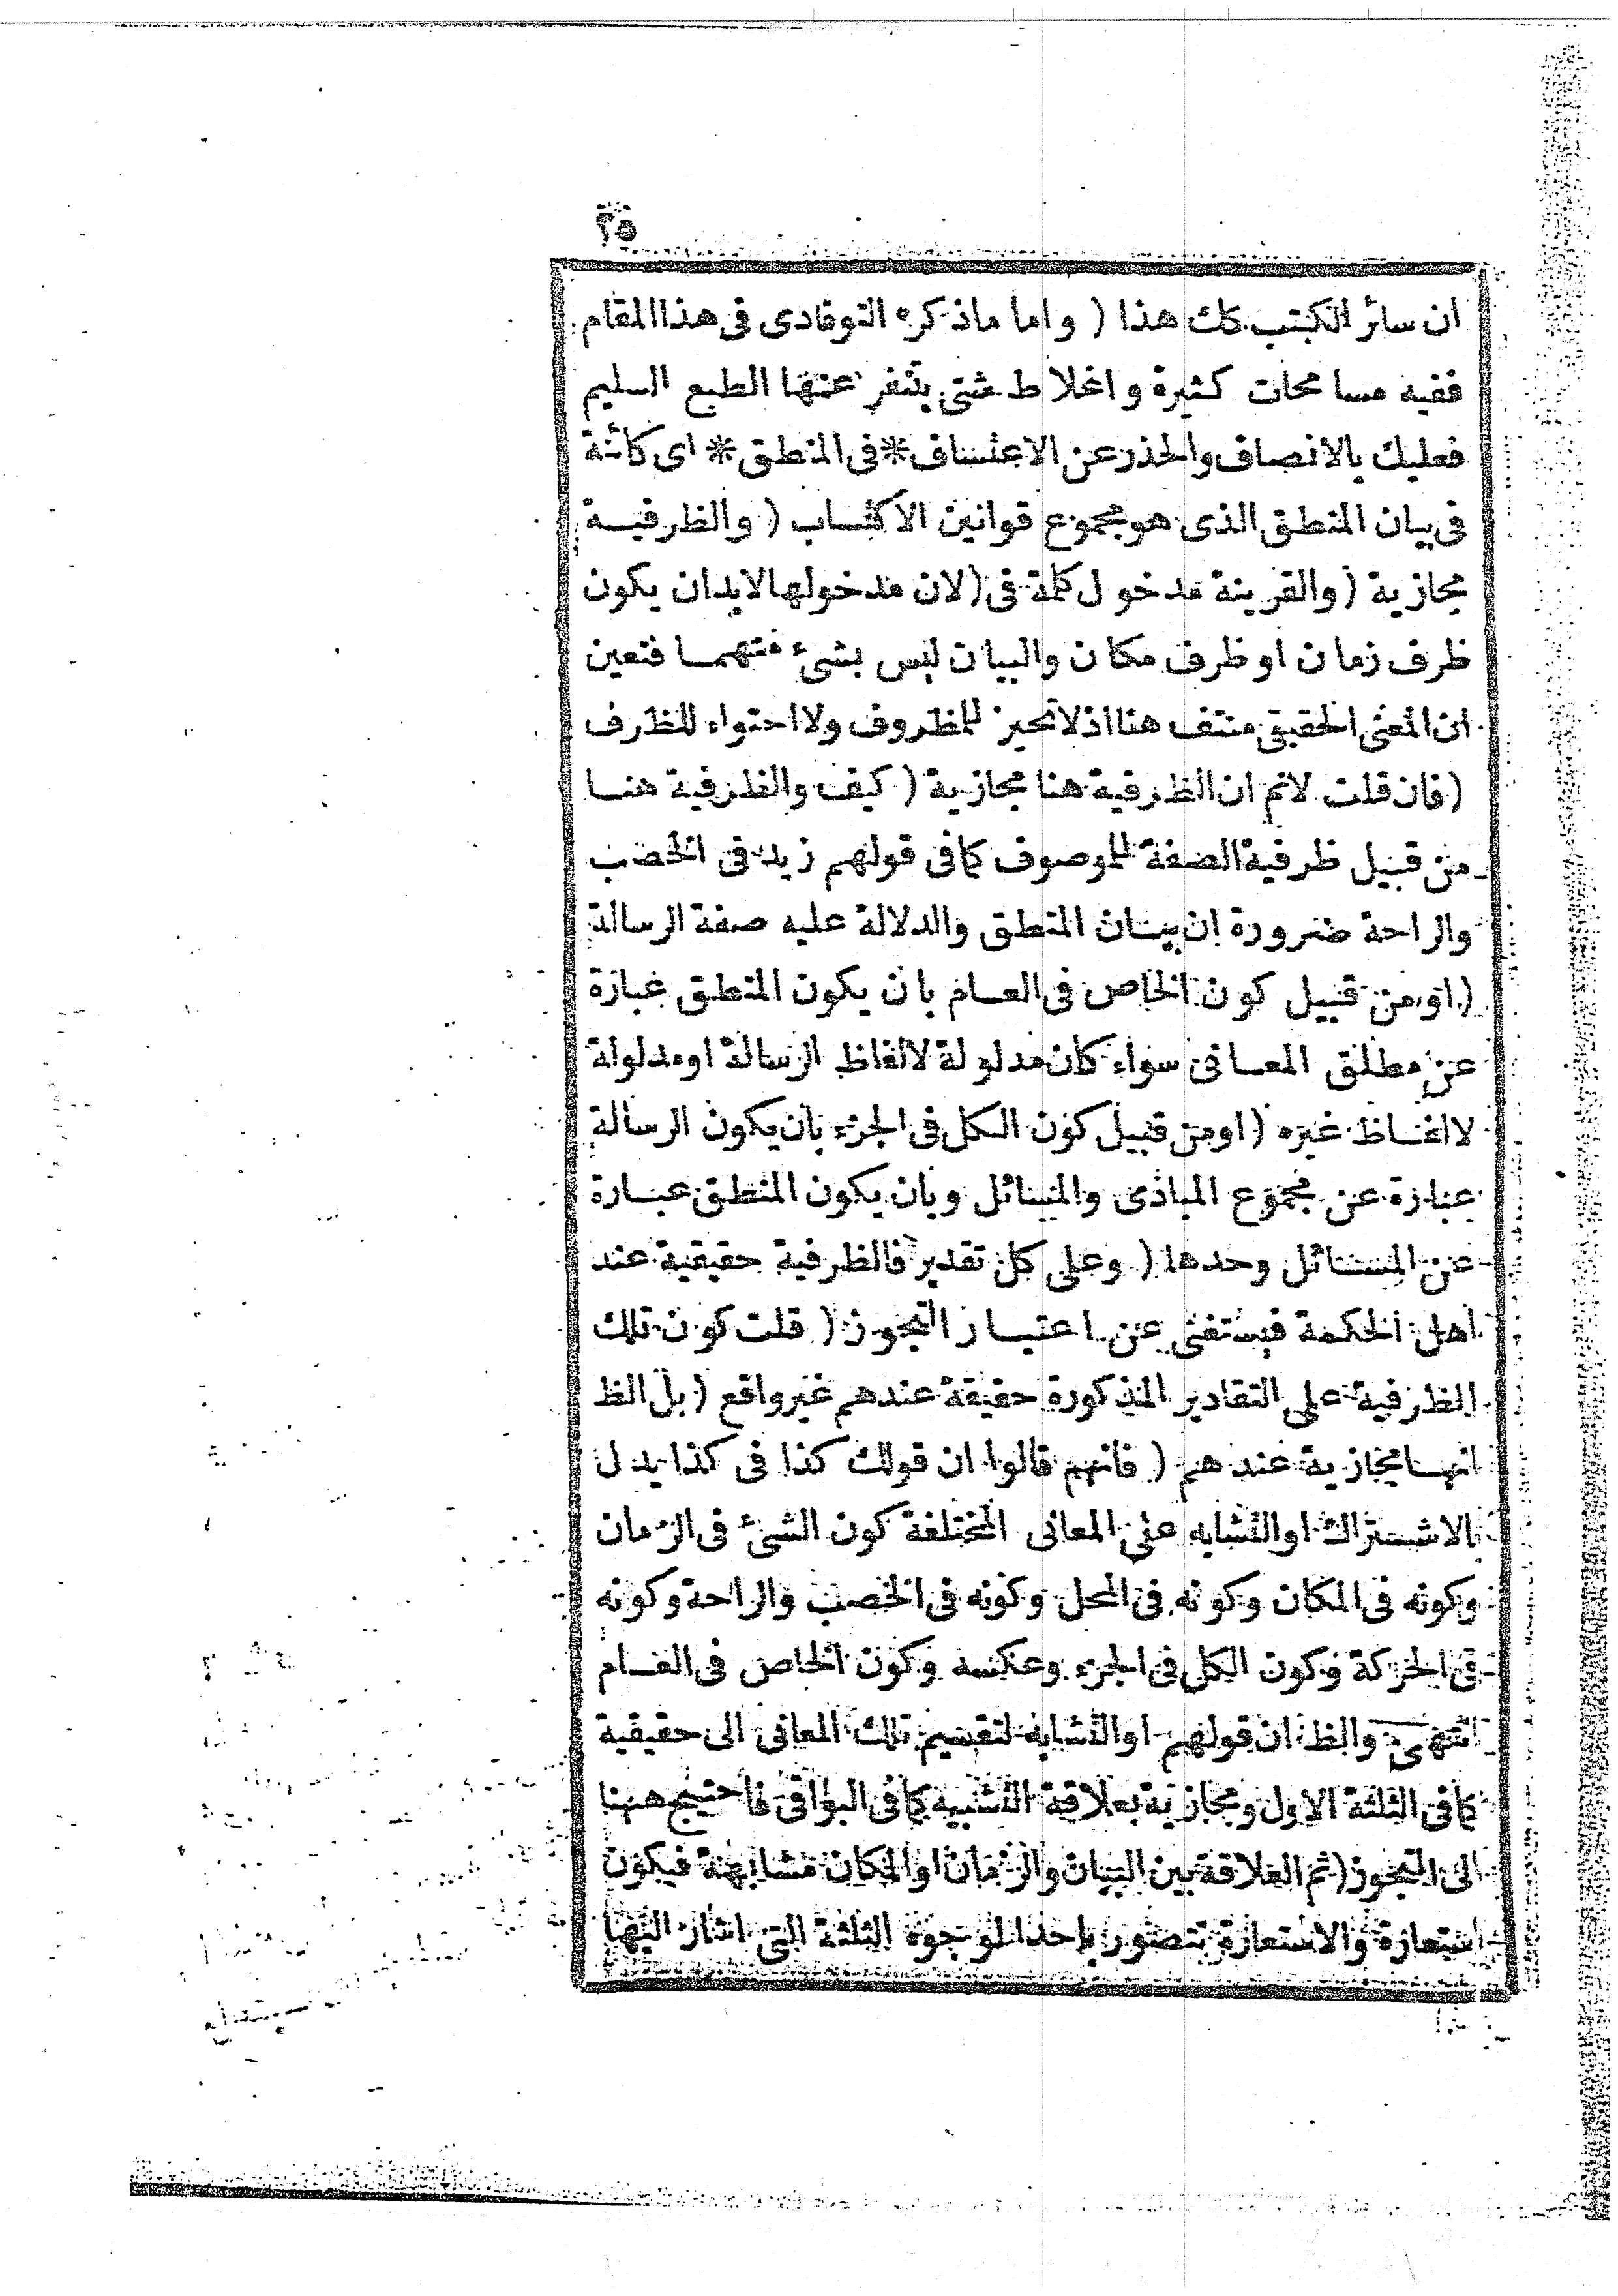 ٢٥
ان سائر الكتب كك هذا ( واما ماذكره التوقادى فى هذا المقام
ففيه مسامحات كثيرة واغلاط شتى يتنفر عنها الطبع السليم
فعليك بالانصاف والحذر عن الاعتساف * فى المنطق * اى كائنة
فى بيان المنطق الذى هو مجموع قوانين الاكتساب ( والظرفية
مجازية ( والقرينة مدخول كلمة فى ( لان مدخولها لابد ان يكون
ظرف زمان او ظرف مكان والبيان ليس بشئ منهما فتعين
ان المعنى الحقيقى منتف هنا اذ لا تحيز للمظروف ولا احتواء للظرف
( فان قلت لانم ان الظرفية هنا مجازية ( كيف والظرفية هنا
من قبيل ظرفية الصفة للموصوف كما فى قولهم زيد فى الخصب
والراحة ضرورة ان بيان المنطق والدلالة عليه صفة الرسالة
( او من قبيل كون الخاص فى العام بان يكون المنطق عبارة
عن مطلق المعانى سواء كان مدلولة لالفاظ الرسالة او مدلولة
لالفاظ غيره ( او من قبيل كون الكل فى الجزء بان يكون الرسالة
عبارة عن مجموع المبادى والمسائل وبان يكون المنطق عبارة
عن المسائل وحدها ( وعلى كل تقدير فالظرفية حقيقية عند
اهل الحكمة فيستغنى عن اعتبار التجوز ( قلت كون تلك
الظرفية على التقادير المذكورة حقيقة عندهم غير واقع ( بل الظ
انها مجازية عندهم ( فانهم قالوا ان قولك كذا فى كذا يدل
بالاشتراك او التشابه على المعانى المختلفة كون الشئ فى الزمان
وكونه فى المكان وكونه فى المحل وكونه فى الخصب والراحة وكونه
فى الحركة وكون الكل فى الجزء وعكسه وكون الخاص فى العام
انتهى والظ ان قولهم او التشابه لتقسيم تلك المعانى الى حقيقية
كما فى الثلثة الاول ومجازية بعلاقة التشبيه كما فى البواقى فاحتيج ههنا
الى التجوز ( ثم العلاقة بين البيان والزمان او المكان مشابهة فيكون
استعارة والاستعارة تتصور باحد الوجوه الثلثة التى اشار اليها